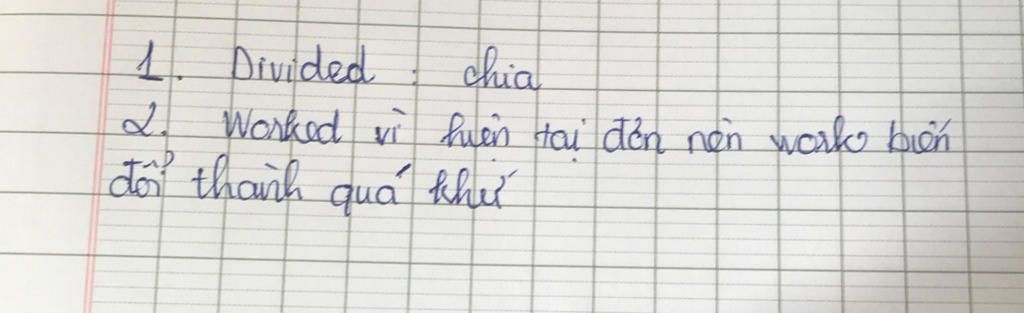 1. Divided : chia
2. Worked vì hiện tại đơn nên work biến
đổi thành quá khứ